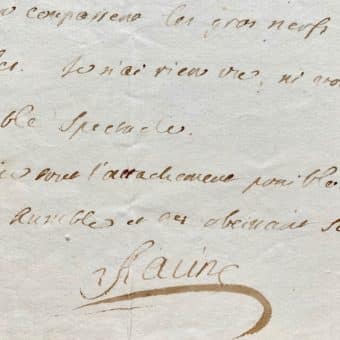 comparerent les gros nerfs
Je n'ai rien vu, ni
ble spectacle.
tout l'attachement possible
humble et obeissant
Racine